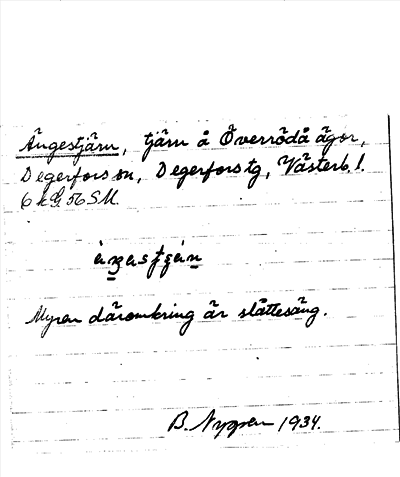 Ängestjärn, tjärn å Överrödå ägor,
Degerfors sn, Degerfors tg, Västerb. l.
6 k G 56 SM.
Myren däromkring är slåttesäng.
B. Nygren 1934.